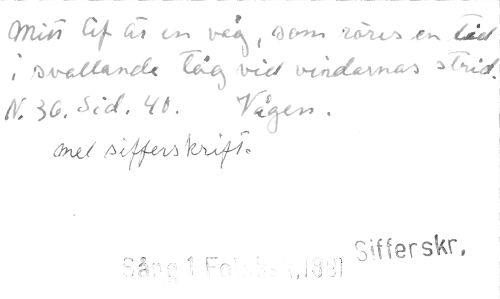 Mitt lif är en våg, som röres en tid
i svallande tåg vid vindarnas strid.
N. 36. Sid. 40. Vågen.
med sifferskrift.
Sifferskr.
Sång 1 1891